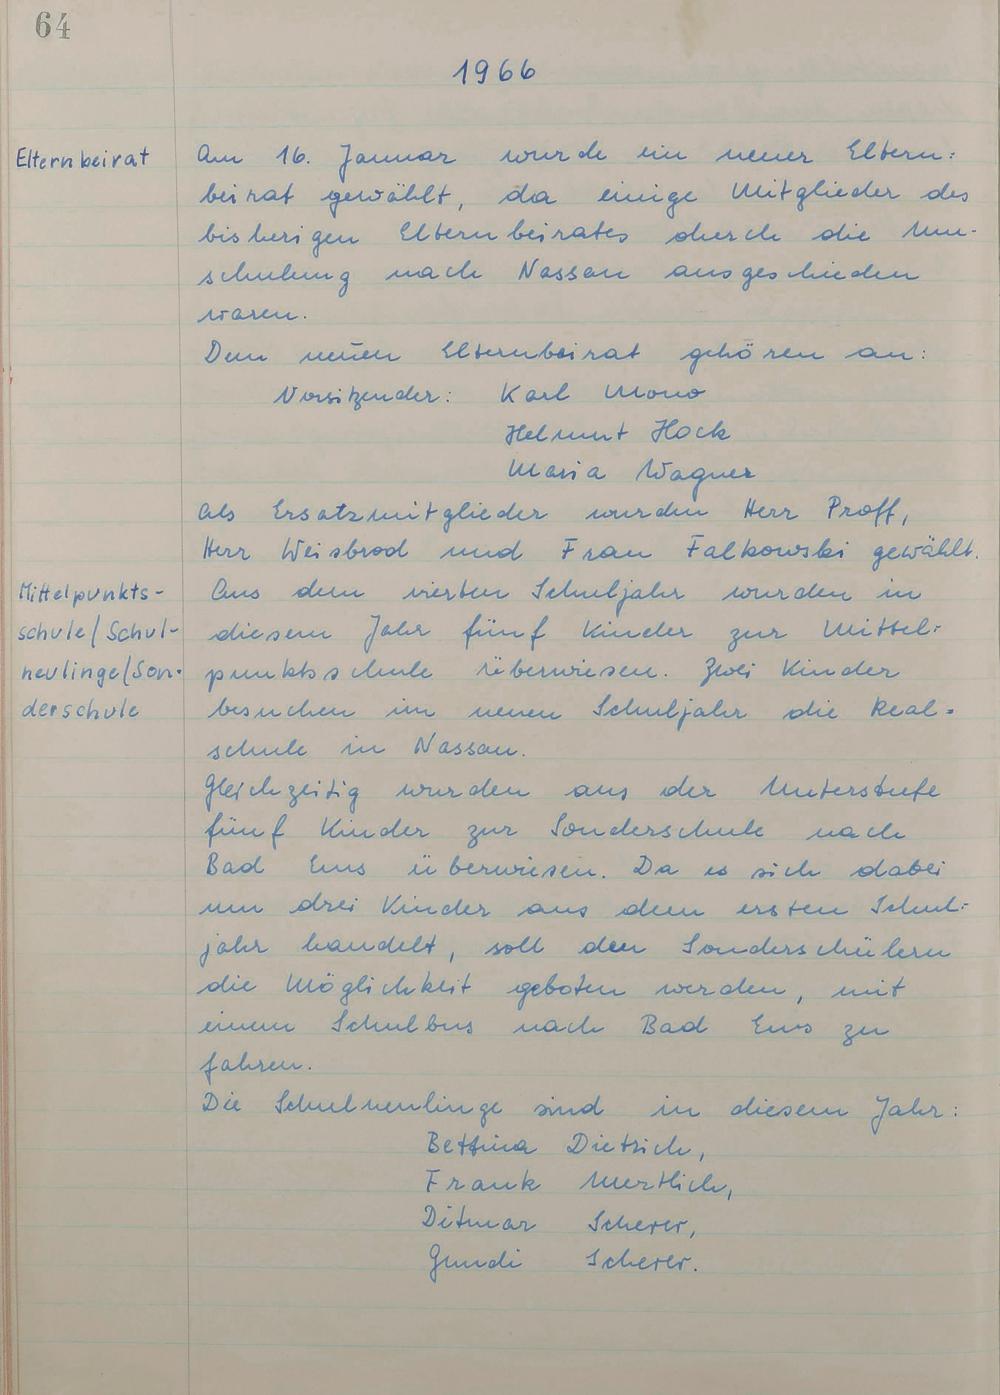 64
1966
Elternbeirat
Am 16. Januar wurde ein neuer Eltern=
beirat gewählt, da einige Mitglieder des
bisherigen Elternbeirates durch die Um-
schulung nach Nassau ausgeschieden
waren.
Dem neuen Elternbeirat gehören an:
Vorsitzender: Karl Mono
Helmut Hock
Maria Wagner
Als Ersatzmitglieder wurden Herr Proff,
Herr Weisbrod und Frau Falkowski gewählt.
Mittelpunkts-
schule/Schul-
neulinge/Son-
derschule
Aus dem vierten Schuljahr wurden in
diesem Jahr fünf Kinder zur Mittel=
punktsschule überwiesen. Zwei Kinder
besuchen im neuen Schuljahr die Real=
schule in Nassau.
Gleichzeitig wurden aus der Unterstufe
fünf Kinder zur Sonderschule nach
Bad Ems überwiesen. Da es sich dabei
um drei Kinder aus dem ersten Schul=
jahr handelt, soll den Sonderschülern
die Möglichkeit geboten werden, mit
einem Schulbus nach Bad Ems zu
fahren.
Die Schulneulinge sind in diesem Jahr:
Bettina Dietrich,
Frank
Ditmar Scherer,
Gundi Scherer.